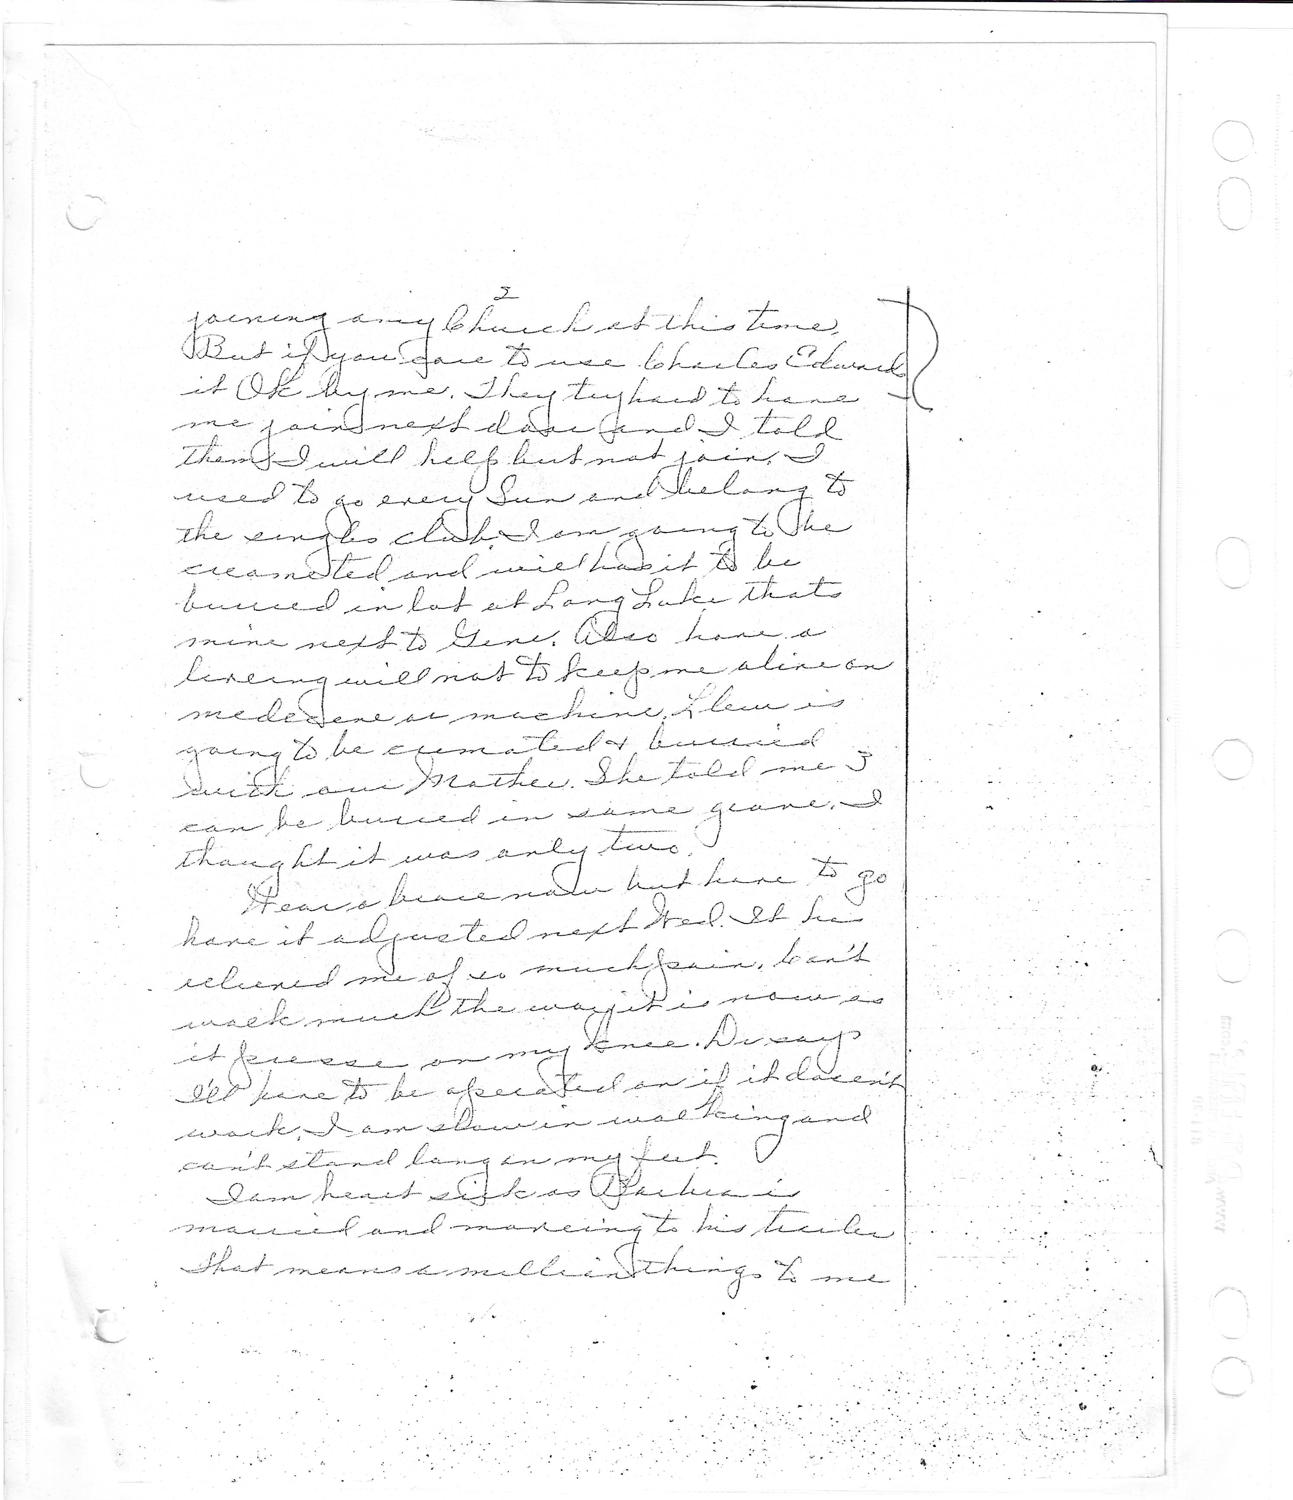 2
joining any Church at this time.
But if you care to use Charles Edwards
it OK by me. They try hard to have
me join next door and I told
them I will help but not join. I
used to go every Sun and belong to
the singles club. I am going to be
creamated and will has it to be
burried in lot at Long Lake thats
mine next to Gene. Also have a
liveing will not to keep me alive on
medecene or machine. Llew is
going to be crematd & burried
with our Mother. She told me 3
can be burried in same grave. I
thought it was only two.
Wear a brace now but have to go
have it adjusted next Wed. It has
relieved me of so much pain. Can't
walk much the way it is now as
it presses on my knee. Dr says
I'll have to be operated on if it doesn't
work. I am slow in walking and
can't stand long on my feet.
I am heart sick as Barbra is
married and moveing to his trailer
that means a million things to me